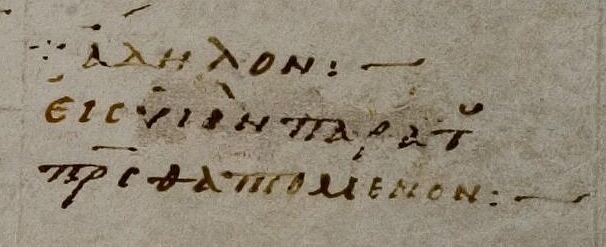 ⁘ ἄδηλον: —
εἰς ὑιὸν παρα τοῦ
πρ̅ς θαπτομενον: —